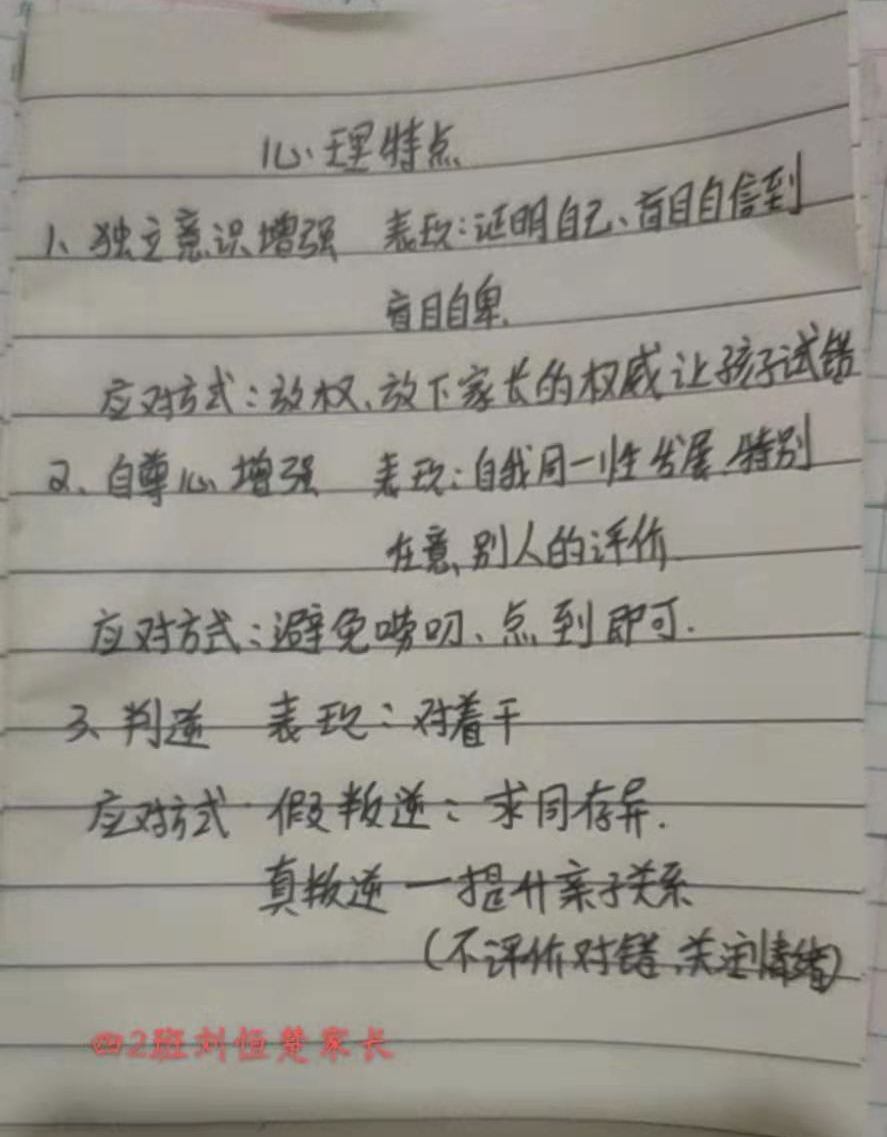 心理特点
1、独立意识增强 表现:证明自己、盲目自信到
盲目自卑.
应对方式:放权、放下家长的权威,让孩子试错
2、自尊心增强 表现:自我同一性发展,特别
在意别人的评价
应对方式:避免唠叨、点到即可.
3、判逆 表现:对着干
应对方式· 假叛逆:求同存异.
真叛逆一提升亲子关系
(不评价对错,关注情绪)
四2班刘恒楚家长